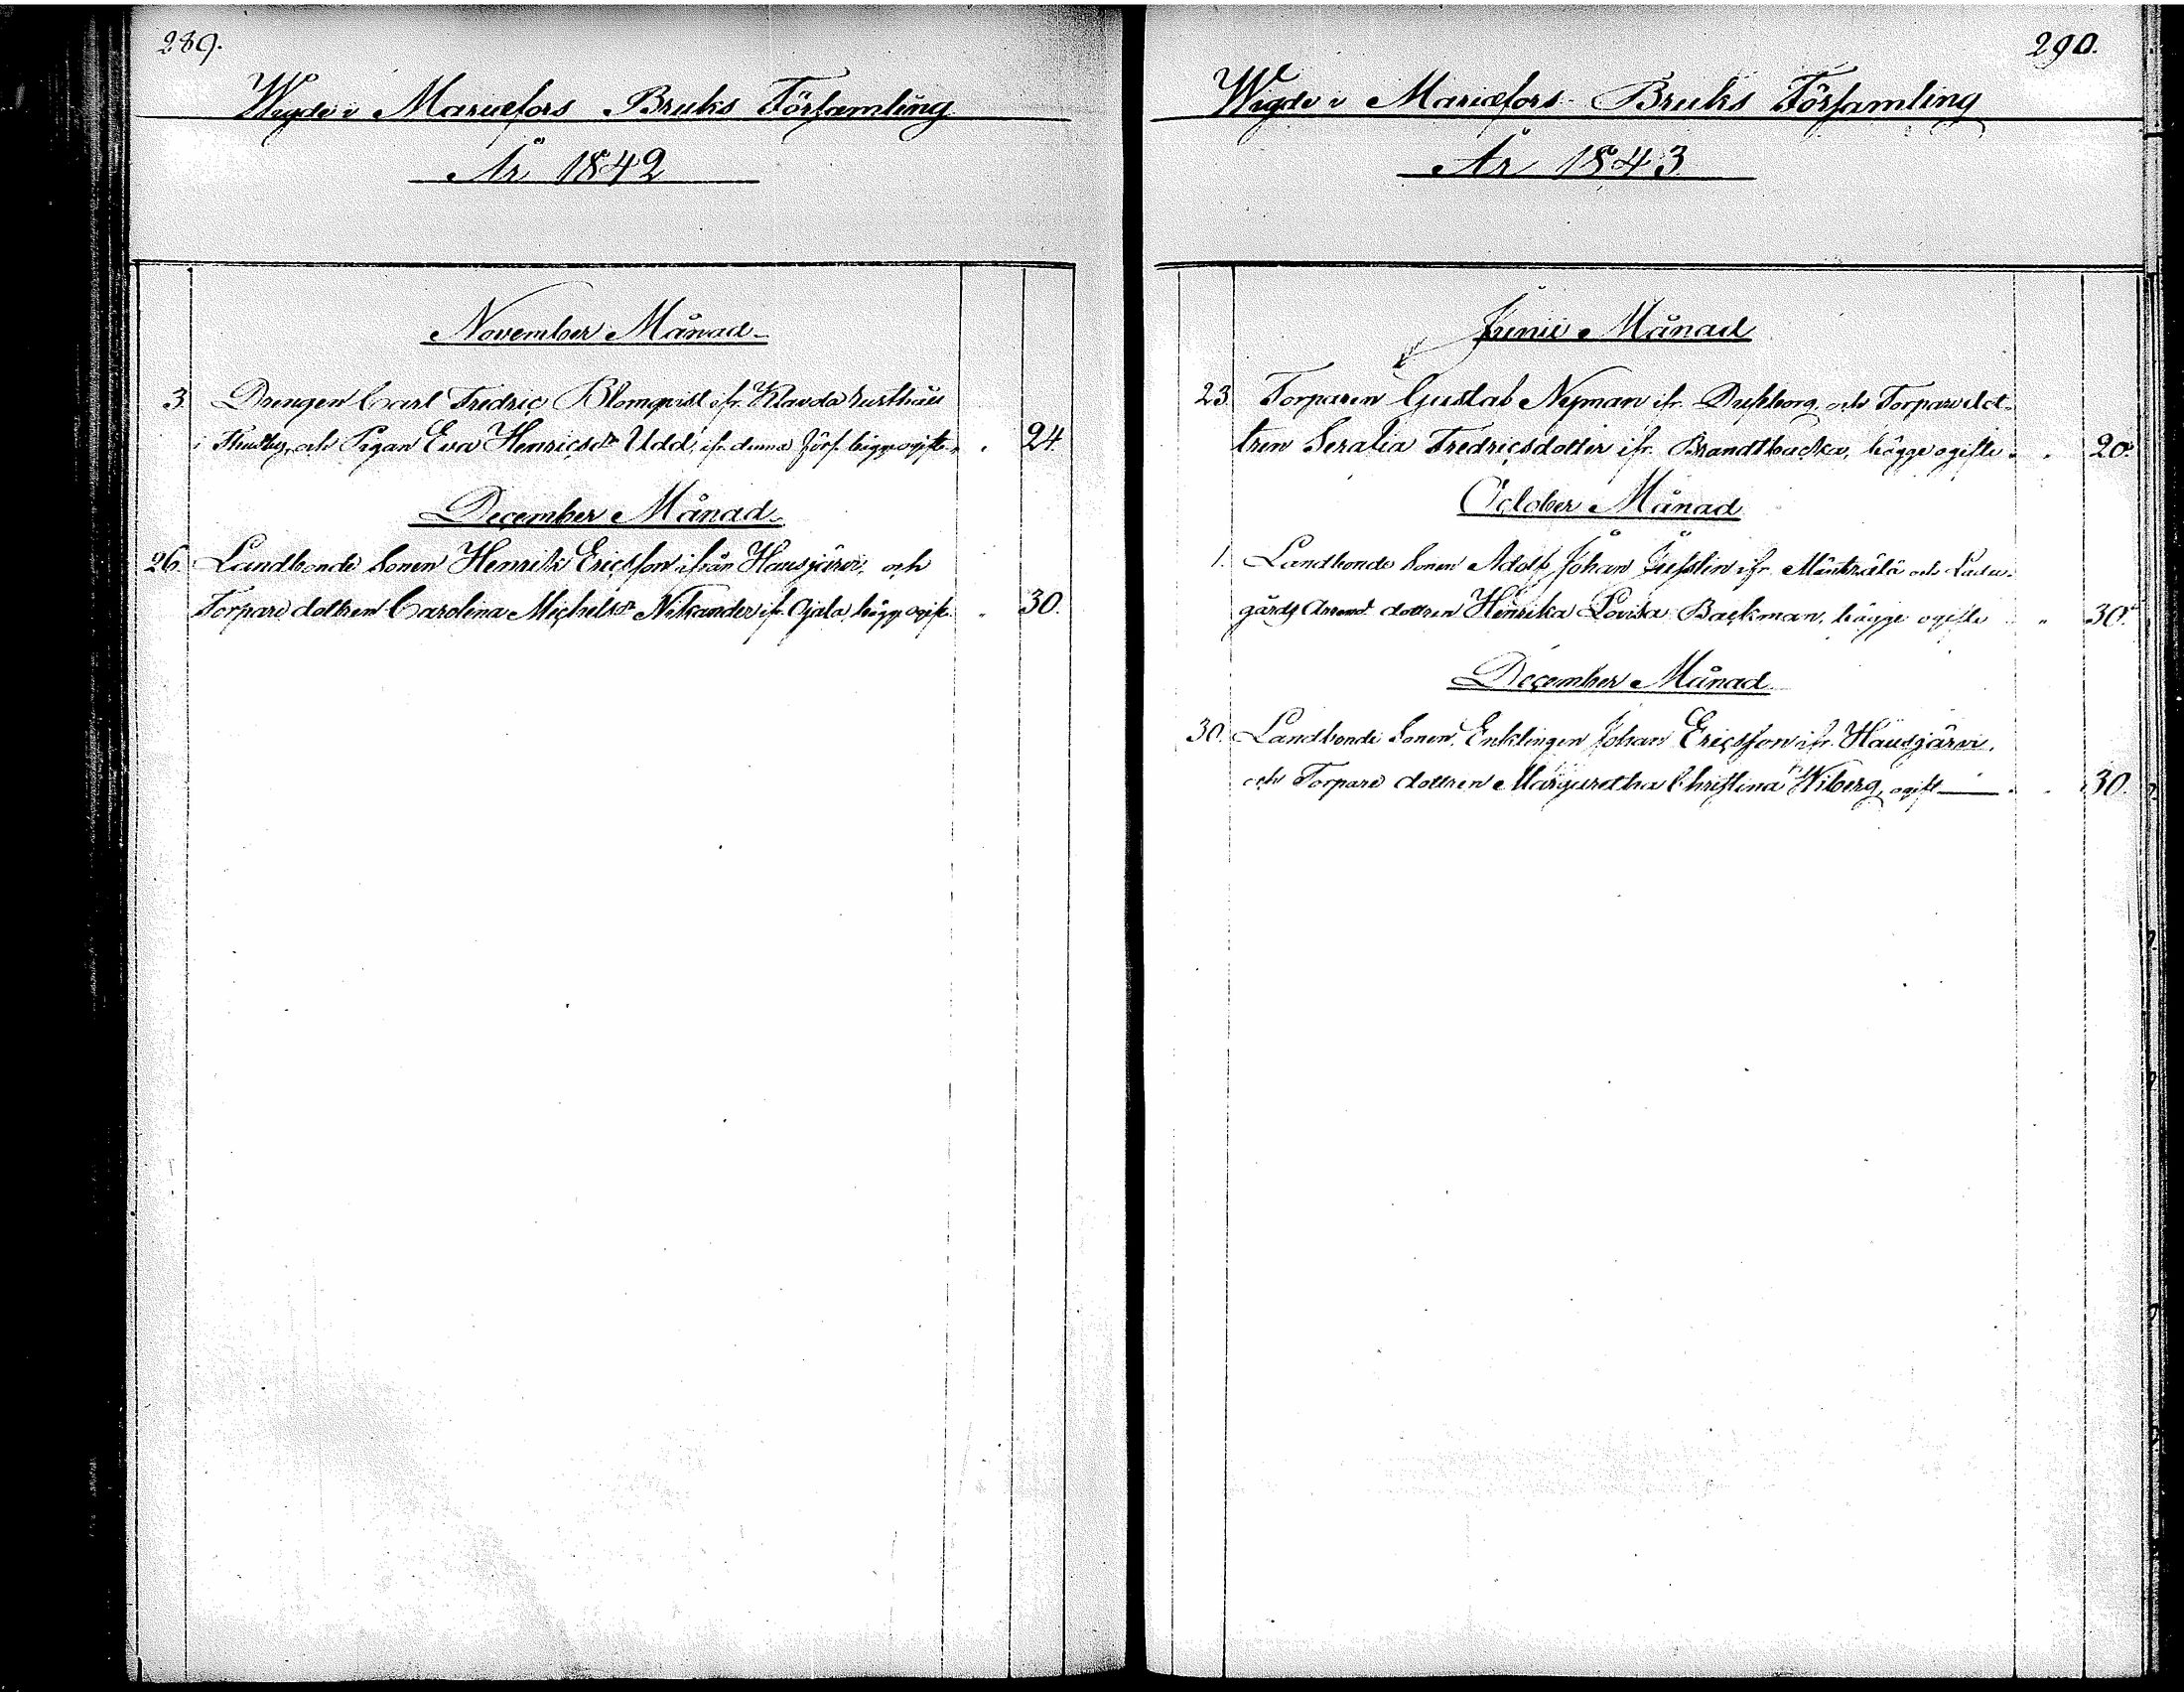 289.
Wigde i Mariæfors Bruks Församling
År 1842
November Månad
3. Drengen Carl Fredric Blomqvist ifr. Klavda rusthåll
i Thusby, och Pigan Eva Henricsdr Udd, ifr. denna förs. bägge ogifte . 24.
December Månad
26. Landbonde Sonen Henrik Ericsson ifrån Hausjärvi, och
Torpare dottren Carolina Michelsdr Nikander ifr. Ojala, bägge ogift. " 30.
290.
Wigde i Mariæfors Bruks Församling
År 1843
Junii Månad
23. Torparen Gustaf Nyman ifr. och Torpare dot-
tren Serafia Fredricsdotter ifr. Brandtbacka, bägge ogifte . . 20.
October Månad
1. Landbonde Sonen Adolf Johan Jusslin ifr. Mäntsälä och Ladu-
gårds Arrend. dottren Henrika Lovisa Backman, bägge ogifte " 30.
December Månad
30. Landbonde Sonen, Enklingen Johan Ericsson ifr. Hausjärvi,
och Torpare dottren Margaretha Christina Wiberg, ogift . . 30.